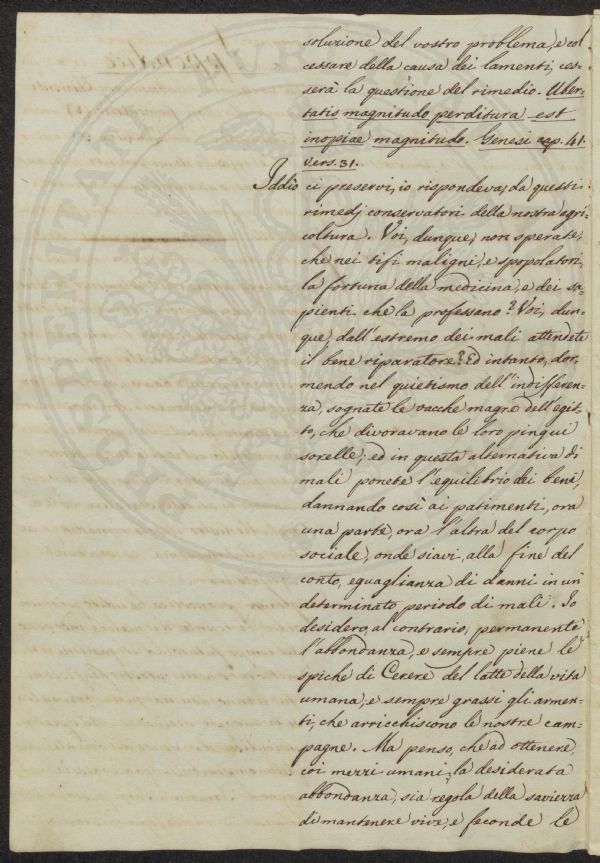 soluzione del vostro problema, e col
cessare della causa dei lamenti, ces-
serà la questione del rimedio. Uber-
tatis magnitudo perditura est
inopiae magnitudo. Genesi cap. 41.
vers. 31.
Iddio ci preservi, io rispondeva, da questi
rimedj conservatori della nostra agri-
coltura. Voi, dunque, non sperate,
che nei tifi maligni, e spopolatori,
la fortuna della medicina, e dei sa-
pienti che la professano? Voi, dun-
que, dall'estremo dei mali attendete
il bene riparatore? Ed intanto, dor-
mendo nel quietismo dell'indifferen-
za, sognate le vacche magre dell'egit-
to, che divoravano le loro pingui
sorelle; ed in questa alternativa di
mali ponete l'equilibrio dei beni,
dannando così ai patimenti, ora
una parte, ora l'altra del corpo
sociale, onde siavi, alla fine del
conto, eguaglianza di danni in un
determinato periodo di mali. Io
desidero, al contrario, permanente
l'abbondanza, e sempre piene le
spiche di Cerere del latte della vita
umana, e sempre grassi gli armen-
ti, che arricchiscono le nostre cam-
pagne. Ma penso, che ad ottenere
coi mezzi umani, la desiderata
abbondanza, sia regola della saviezza
di mantenere vive, e feconde le